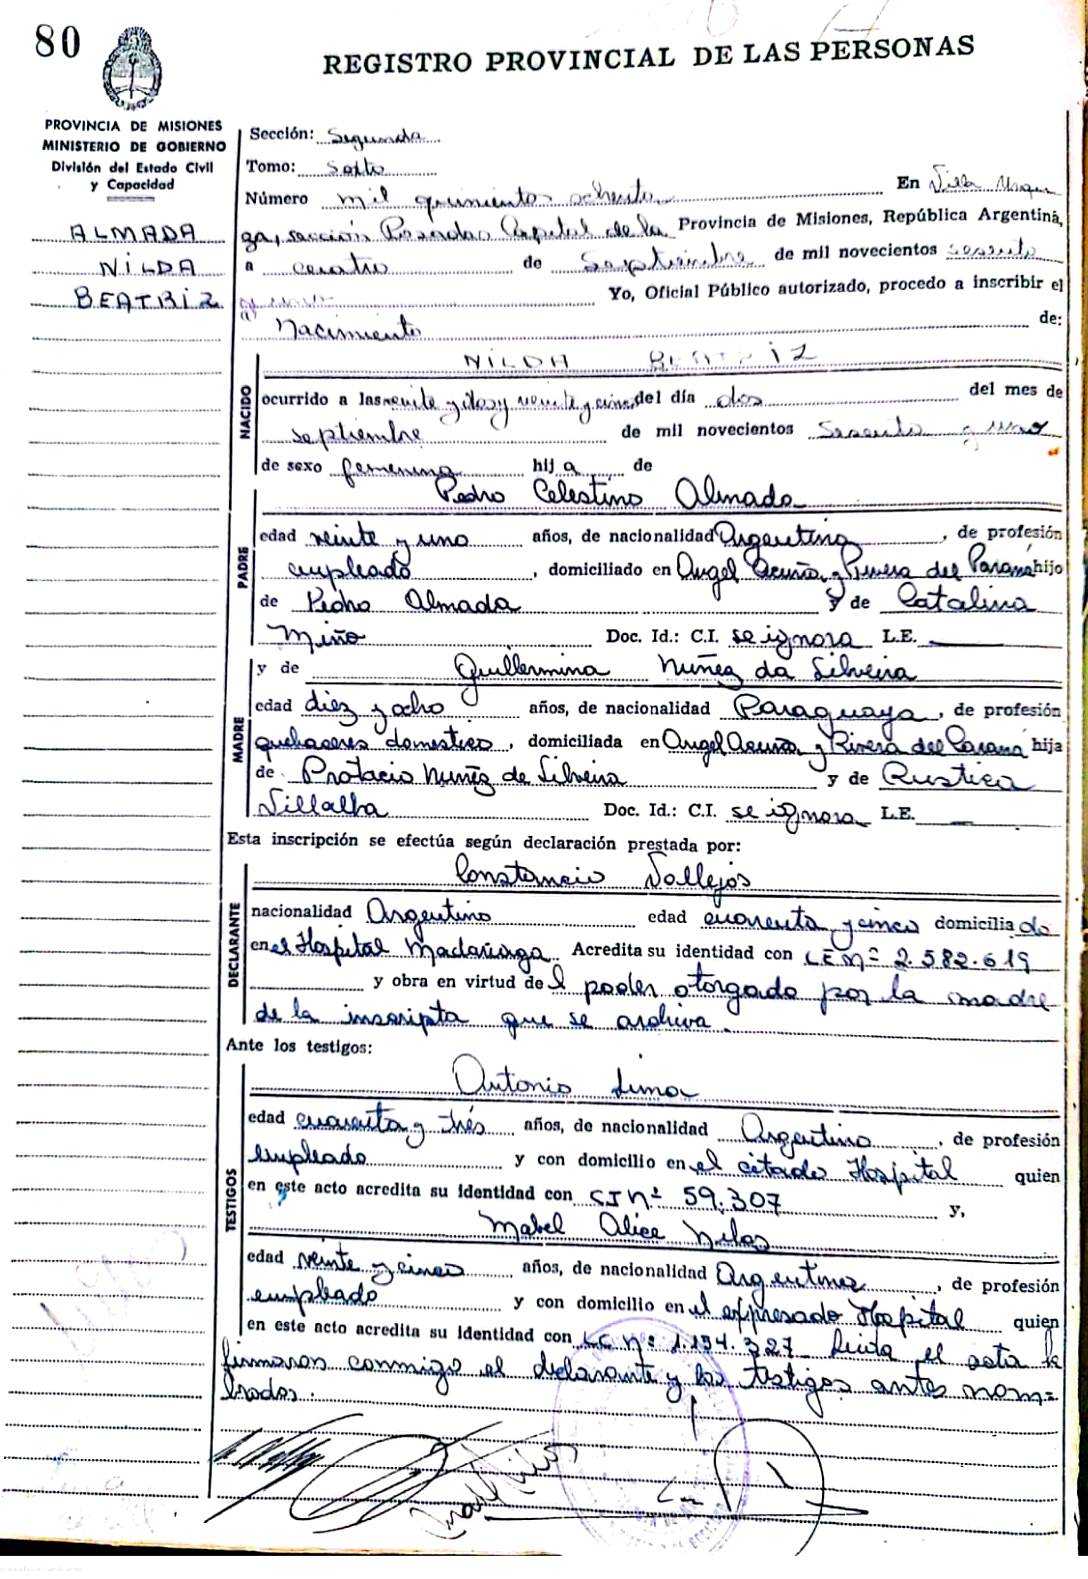 80
REGISTRO PROVINCIAL DE LAS PERSONAS
PROVINCIA DE MISIONES
MINISTERIO DE GOBIERNO
División del Estado Civil
y Capacidad
ALMADA
NILDA
BEATRIZ
Sección: Segunda
Tomo: Sexto
Número mil quinientos ochenta En Villa Urqui
ga, sección Posadas Capital de la Provincia de Misiones, República Argentina,
a cuatro de Septiembre de mil novecientos sesenta
y uno Yo, Oficial Público autorizado, procedo a inscribir el
Nacimiento de:
NACIDO
NILDA BEATRIZ
ocurrido a las veinte y dos y veinte y cinco del día dos del mes de
septiembre de mil novecientos sesenta y uno
de sexo femenino hija de
PADRE
Pedro Celestino Almada
edad veinte y uno años, de nacionalidad Argentina, de profesión
empleado, domiciliado en Angel Acuña y Rivera del Paraná hijo
de Pedro Almada y de Catalina
Miño Doc. Id.: C.I. se ignora L.E.
MADRE
y de Guillermina Nuñez da Silveira
edad diez y ocho años, de nacionalidad Paraguaya, de profesión
quehaceres domestico, domiciliada en Angel Acuña y Rivera del Paraná hija
de Protacio Nuñez de Silveira y de Rustica
Villalba Doc. Id.: C.I. se ignora L.E.
Esta inscripción se efectúa según declaración prestada por:
DECLARANTE
Constancio Vallejos
nacionalidad Argentino edad cuarenta y cinco domiciliado
en el Hospital Madariaga. Acredita su identidad con LE Nº 2.582.619
y obra en virtud del poder otorgado por la madre
de la inscripta que se archiva.
Ante los testigos:
TESTIGOS
Antonio Lima
edad cuarenta y trés años, de nacionalidad Argentino, de profesión
empleado y con domicilio en el citado Hospital quien
en este acto acredita su identidad con CI Nº 59.307 y,
Mabel Alice
edad veinte y cinco años, de nacionalidad Argentina, de profesión
empleado y con domicilio en el expresado Hospital quien
en este acto acredita su identidad con LC Nº 1.154.327 Leida el acta la
firmaron conmigo el declarante y los testigos antes nom=
brados.